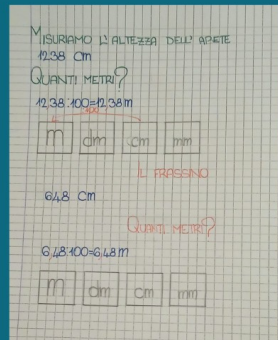 MISURIAMO L'ALTEZZA DELL' ABETE
1238 cm
QUANTI METRI?
12,38:100=12,38m
:100
m dm cm mm
IL FRASSINO
648 cm
QUANTI METRI?
6,48:100=6,48m
m dm cm mm